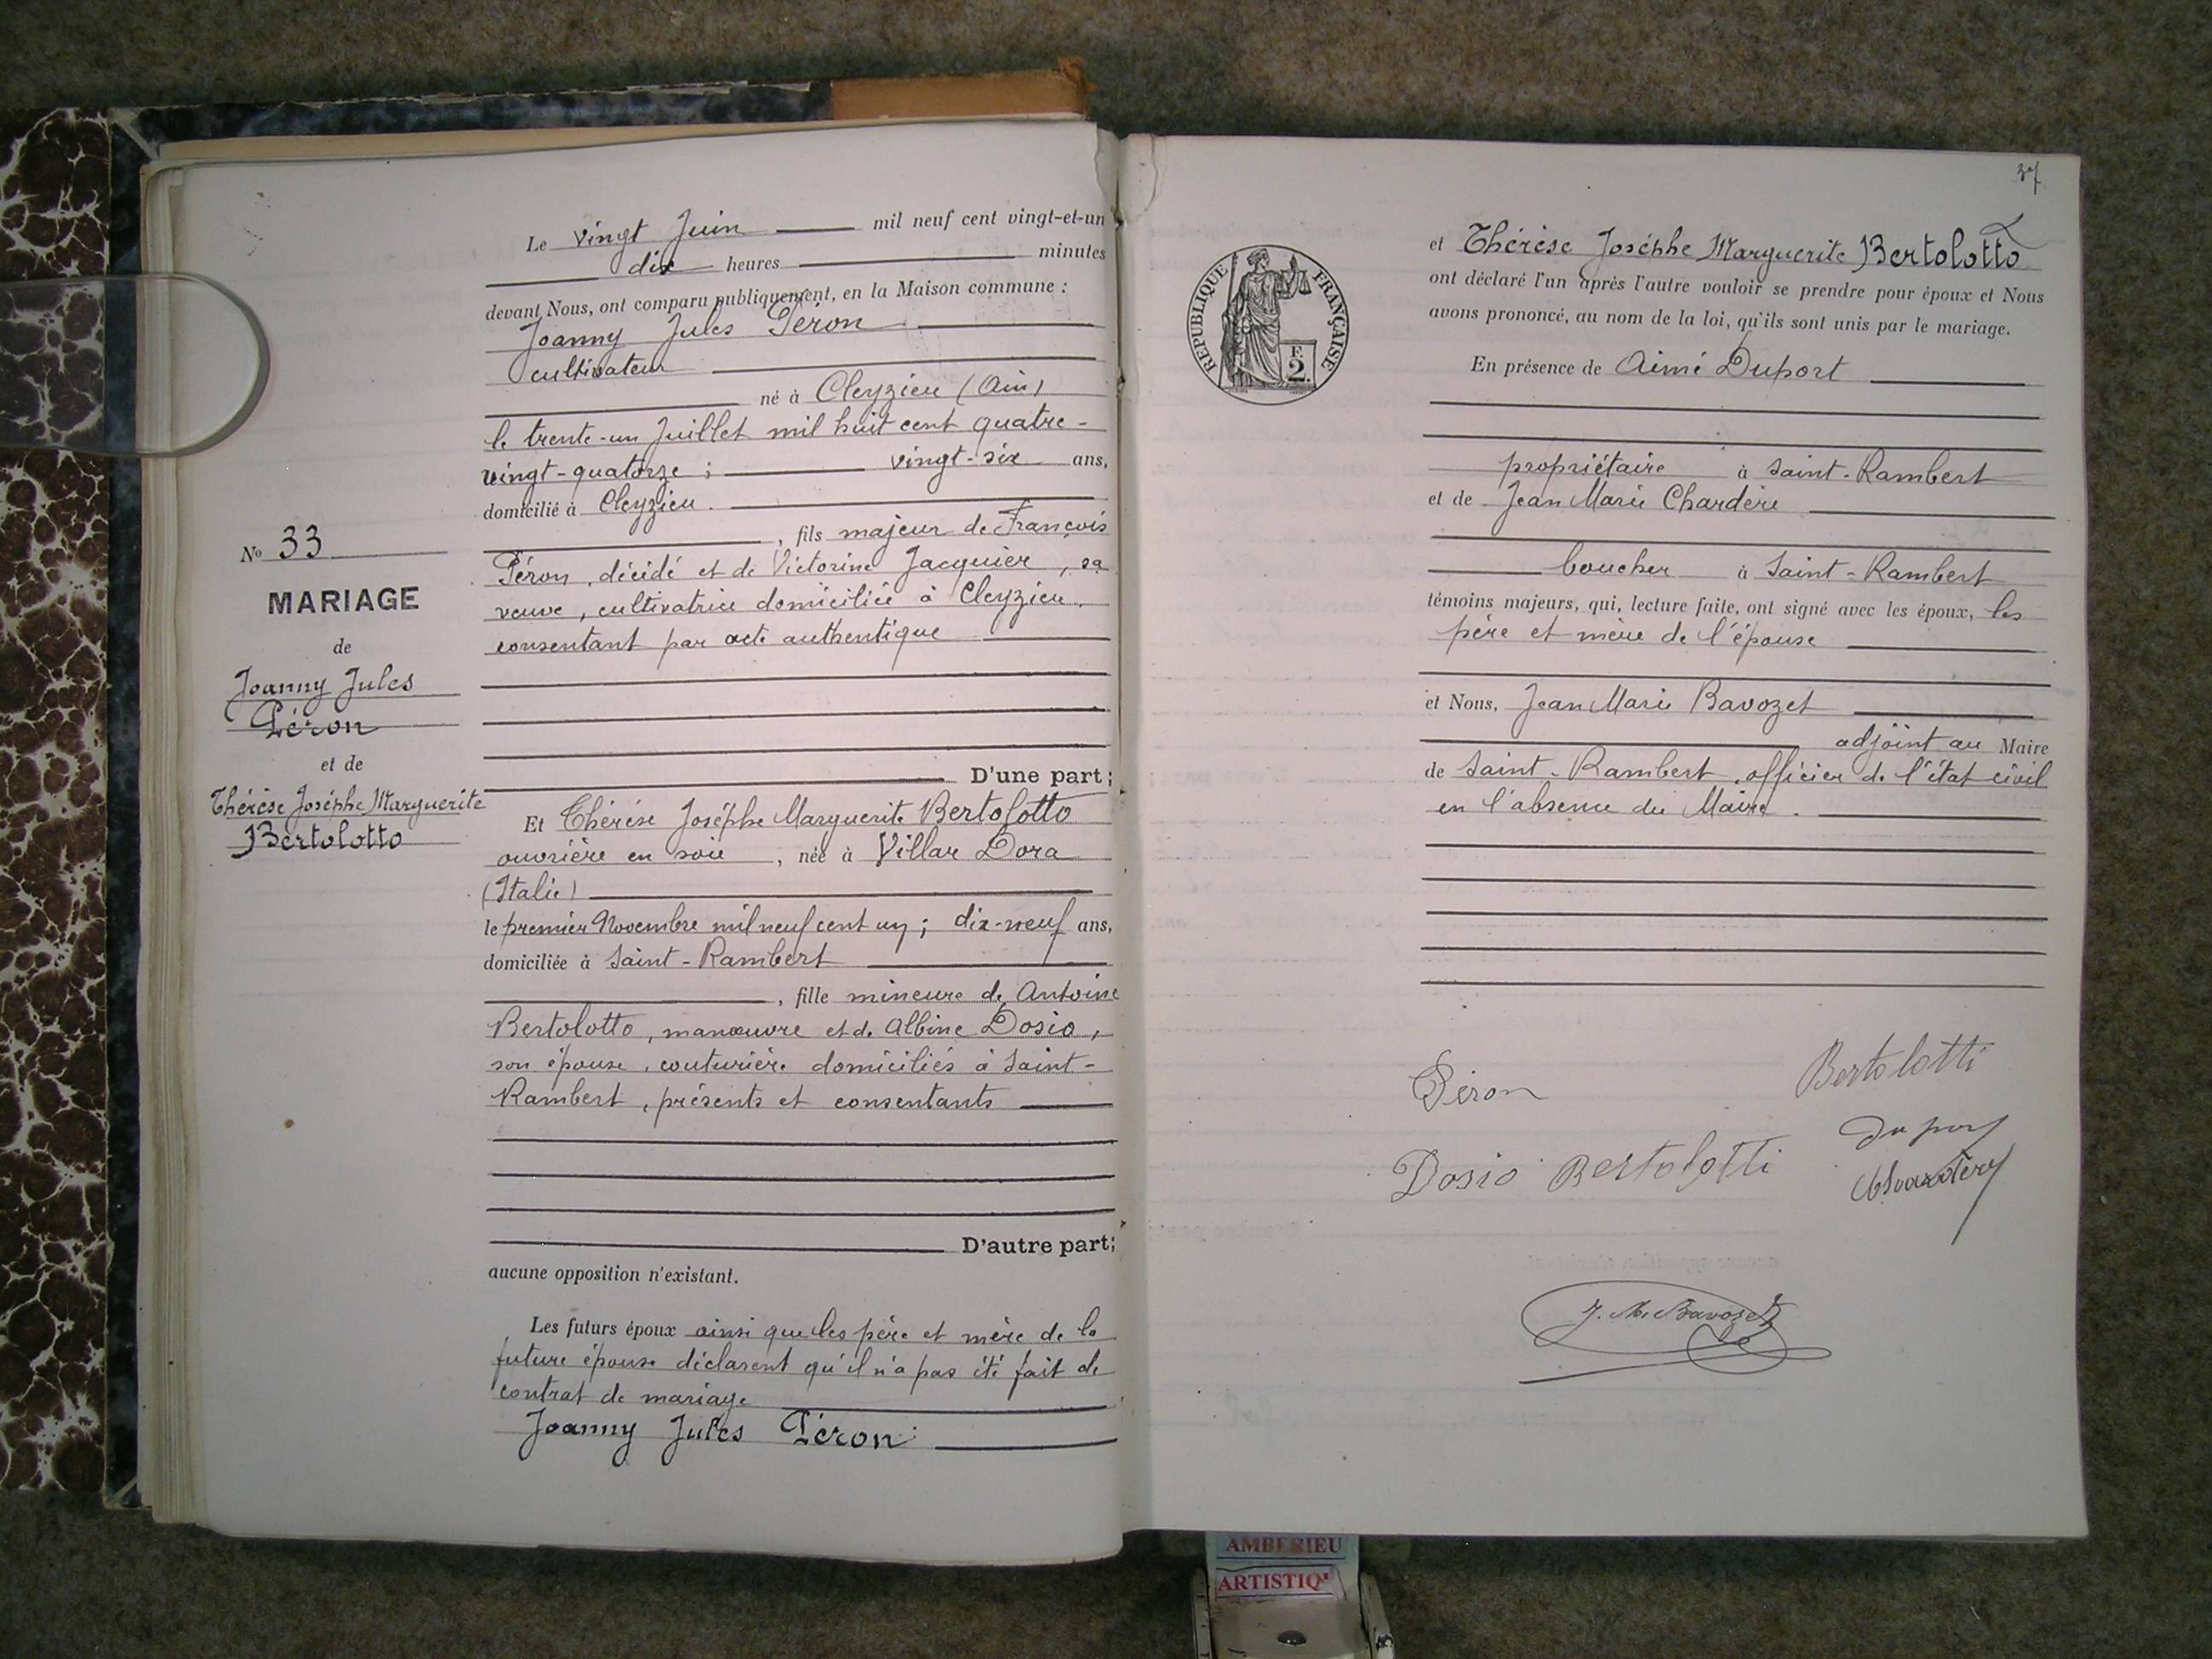 N° 33
MARIAGE
de
Joanny Jules
Péron
et de
Thérèse Joséphe Marguerite
Bertolotto
Le vingt Juin mil neuf cent vingt-et-un
dix heures minutes
devant Nous, ont comparu publiquement, en la Maison commune :
Joanny Jules Péron
cultivateur
né à Cleyzieu (Ain)
le trente-un Juillet mil huit cent quatre-
vingt-quatorze ; vingt-six ans,
domicilié à Cleyzieu.
, fils majeur de François
Péron, décédé et de Victorine Jacquier, sa
veuve, cultivatrice domiciliée à Cleyzieu.
consentant par acte authentique
D'une part ;
Et Thérèse Joséphe Marguerite Bertolotto
ouvrière en soie, née à Villar Dora
(Italie)
le premier Novembre mil neuf cent un ; dix-neuf ans,
domiciliée à Saint-Rambert
, fille mineure de Antoine
Bertolotto, manœuvre et de Albine Dosio,
son épouse, couturière domiciliés à Saint-
Rambert, présents et consentants
D'autre part;
aucune opposition n'existant.
Les futurs époux ainsi que les père et mère de la
future épouse déclarent qu'il n'a pas été fait de
contrat de mariage
Joanny Jules Péron
37
RÉPUBLIQUE FRANÇAISE
F.
2.
et Thérèse Joséphe Marguerite Bertolotto
ont déclaré l'un après l'autre vouloir se prendre pour époux et Nous
avons prononcé, au nom de la loi, qu'ils sont unis par le mariage.
En présence de Aimé Duport
propriétaire à Saint-Rambert
et de Jean Marie Chardère
boucher à Saint-Rambert
témoins majeurs, qui, lecture faite, ont signé avec les époux, les
père et mère de l'épouse
et Nous, Jean Marie Bavozet
adjoint au Maire
de Saint-Rambert, officier de l'état civil
en l'absence du Maire.
Péron Bertolotti
Duport
Dosio Bertolotti
J. M. Bavozet
AMBERIEU
ARTISTIQ